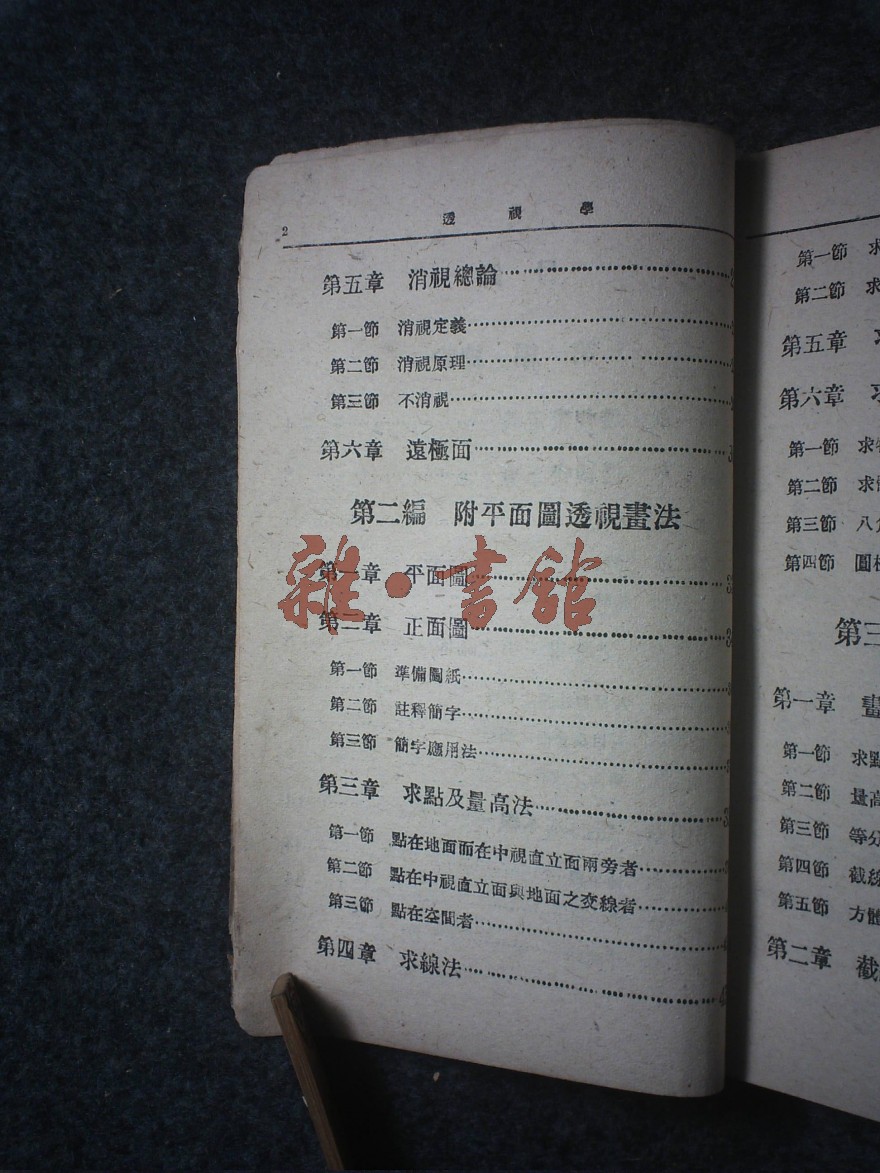 2
透視學
第五章 消視總論
第一節 消視定義
第二節 消視原理
第三節 不消視
第六章 遠極面
第二編 附平面圖透視畫法
第一章 平面圖
第二章 正面圖
第一節 準備圖紙
第二節 註釋簡字
第三節 簡字應用法
第三章 求點及量高法
第一節 點在地面而在中視直立面兩旁者
第二節 點在中視直立面與地面之交線者
第三節 點在空間者
第四章 求線法
雜·書館
第一節 求
第二節 求
第五章
第六章
第一節 求
第二節 求
第三節 八
第四節 圓
第三
第一章 畫
第一節 求點
第二節 量高
第三節 等分
第四節 截線
第五節 方體
第二章 截